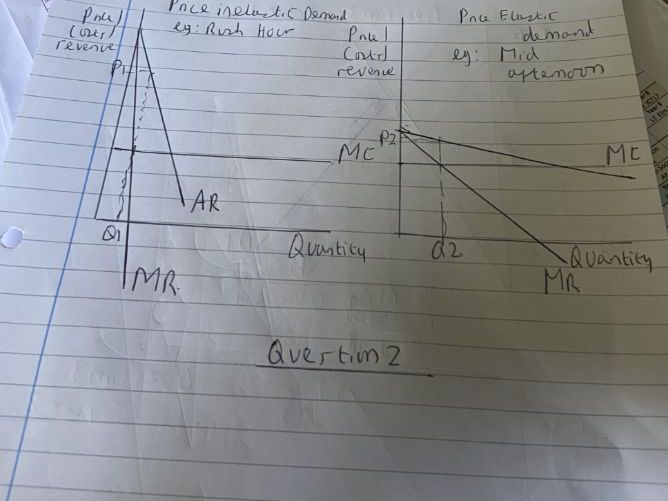 Price inelastic Demand
eg: Rush Hour
Price/
Cost/
revenue
P1
MC
AR
Q1
Quantity
MR.
Price Elastic
demand
eg: Mid
afternoon
Price/
Cost/
revenue
P2
MC
Q2
Quantity
MR
Question 2